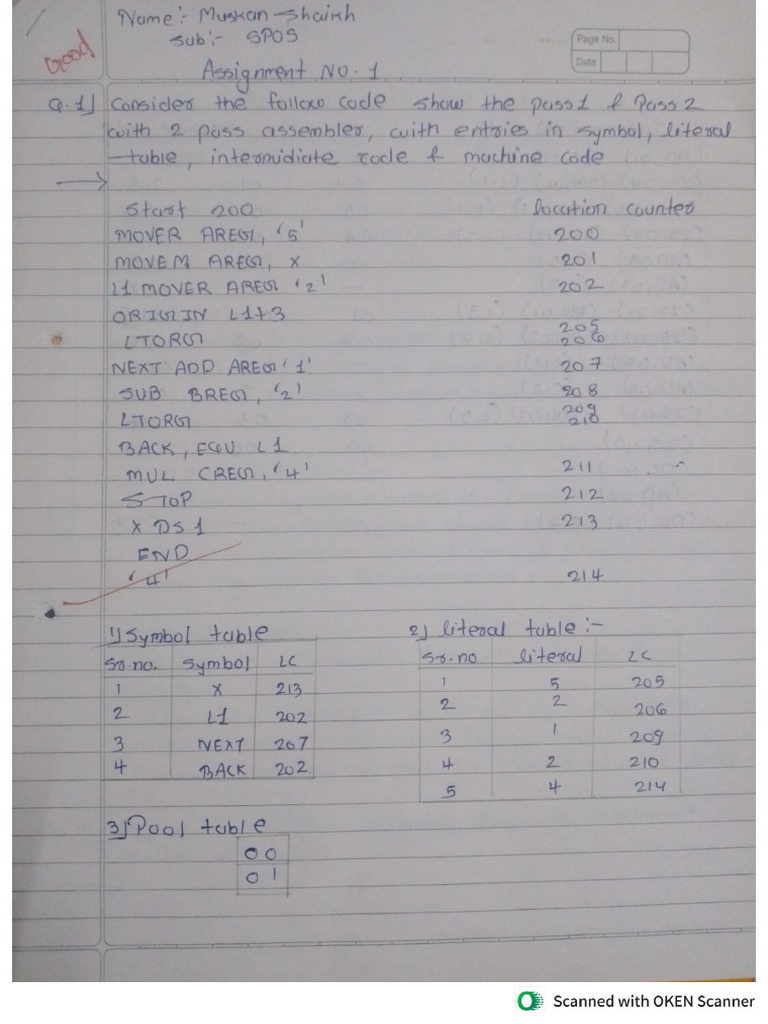 Good
Name:- Muskan Shaikh
Sub:- SPOS
Page No.
Date
Assignment No. 1
Q.1] Consider the follow code show the pass1 & Pass 2
with 2 pass assembler, with entries in symbol, literal
table, intermidiate code & machine code
Start 200 location counter
MOVER AREG, '5' 200
MOVEM AREG, X 201
L1 MOVER AREG '2' 202
ORIGIN L1+3
LTORG 205
206
NEXT ADD AREG '1' 207
SUB BREG, '2' 208
LTORG 209
210
BACK, EQU L1
MUL CREG, '4' 211
STOP 212
X DS 1 213
END
'4' 214
1) Symbol table 2) literal table :-
Sr.no. Symbol LC Sr.no literal LC
1 X 213 1 5 205
2 L1 202 2 2 206
3 NEXT 207 3 1 209
4 BACK 202 4 2 210
5 4 214
3) Pool table
00
01
Scanned with OKEN Scanner